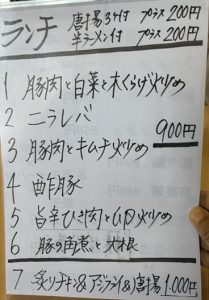 ランチ
唐揚3ヶ付 プラス200円
半ラーメン付 プラス200円
1 豚肉と白菜と木くらげ炒め
2 ニラレバ
900円
3 豚肉とキムチ炒め
4 酢豚
5 旨辛ひき肉とニラ炒め
6 豚の角煮と大根
7 炙りチキン&アジフライ&唐揚 1,000円